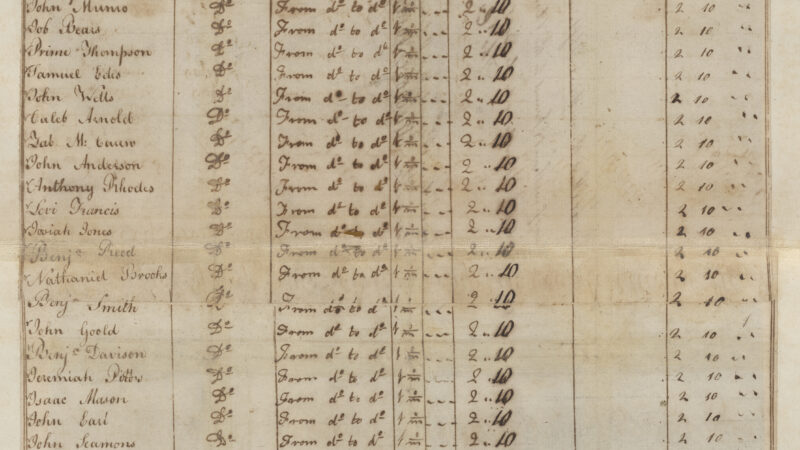 John Munro Do From do to do 1 2 .. 10 2 10 ..
Job Bears Do From do to do 1 2 .. 10 2 10 ..
Prime Thompson Do From do to do 1 2 .. 10 2 10 ..
Samuel Edis Do From do to do 1 2 .. 10 2 10 ..
John Wells Do From do to do 1 2 .. 10 2 10 ..
Caleb Arnold Do From do to do 1 2 .. 10 2 10 ..
Do From do to do 1 2 .. 10 2 10 ..
John Anderson Do From do to do 1 2 .. 10 2 10 ..
Anthony Rhodes Do From do to do 1 2 .. 10 2 10 ..
Levi Francis Do From do to do 1 2 .. 10 2 10 ..
Josiah Jones Do From do to do 1 2 .. 10 2 10 ..
Benja Reed Do From do to do 1 2 .. 10 2 10 ..
Nathaniel Brooks Do From do to do 1 2 .. 10 2 10 ..
Benja Smith Do From do to do 1 2 .. 10 2 10 ..
John Goold Do From do to do 1 2 .. 10 2 10 ..
Benja Davison Do From do to do 1 2 .. 10 2 10 ..
Jeremiah Do From do to do 1 2 .. 10 2 10 ..
Isaac Mason Do From do to do 1 2 .. 10 2 10 ..
John Earl Do From do to do 1 2 .. 10 2 10 ..
John Seamons Do From do to do 1 2 .. 10 2 10 ..